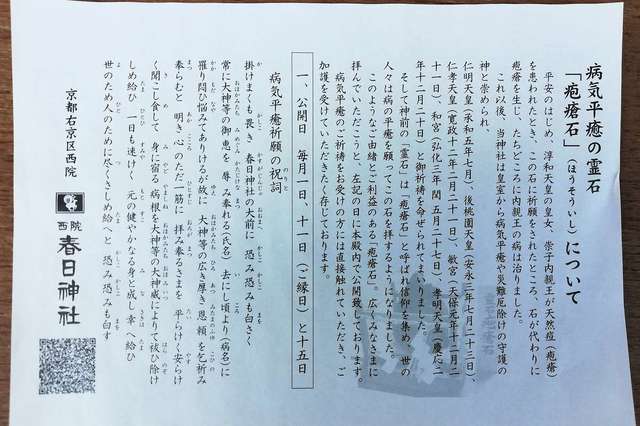 病気平癒の霊石
「疱瘡石」(ほうそういし)について
平安のはじめ、淳和天皇の皇女、崇子内親王が天然痘(疱瘡)
を患われたとき、この石に祈願をされたところ、石が代わりに
疱瘡を生じ、たちどころに内親王の病は治りました。
これ以後、当神社は皇室から病気平癒や災難厄除けの守護の
神と崇められ、
仁明天皇(承和五年七月)、後桃園天皇(安永三年七月二十三日)、
仁孝天皇(寛政十二年二月二十一日)、敏宮(天保元年十二月二
十一日)、和宮(弘化三年 閏五月二十七日)、孝明天皇(慶応二
年十二月二十日)と御祈祷を命ぜられてまいりました。
そして神前の「霊石」は「疱瘡石」と呼ばれ信仰を集め、世の
人々は病の平癒を願ってこの石を拝するようになりました。
このようなご由緒とご利益のある「疱瘡石」。広くみなさまに
拝んでいただこうと、左記の日に本殿内で公開致しております。
病気平癒のご祈祷をお受けの方には直接触れていただき、ご
加護を受けていただきたく存じております。
一、公開日 毎月一日、十一日(ご縁日)と十五日
病気平癒祈願の祝詞
掛けまくも畏き 春日神社の大前に 恐み恐みも白さく
常に大神等の御恵を 辱なみ奉れる(氏名) 去にし頃より(病名)に
罹り悶ひ悩みてありけるが故に 大神等の広き厚き恩頼を乞祈み
奉らむと 明き心のただ一筋に 拝み奉るさまを 平らけく安らけ
く聞こし食して 身に宿る 病根を大神等の大神威によりて祓ひ除け
しめ給ひ 一日も速けく 元の健やかなる身と成し幸へ給ひ
世のため人のために尽くさしめ給へと 恐み恐みも白す
京都右京区西院
西院
春日神社